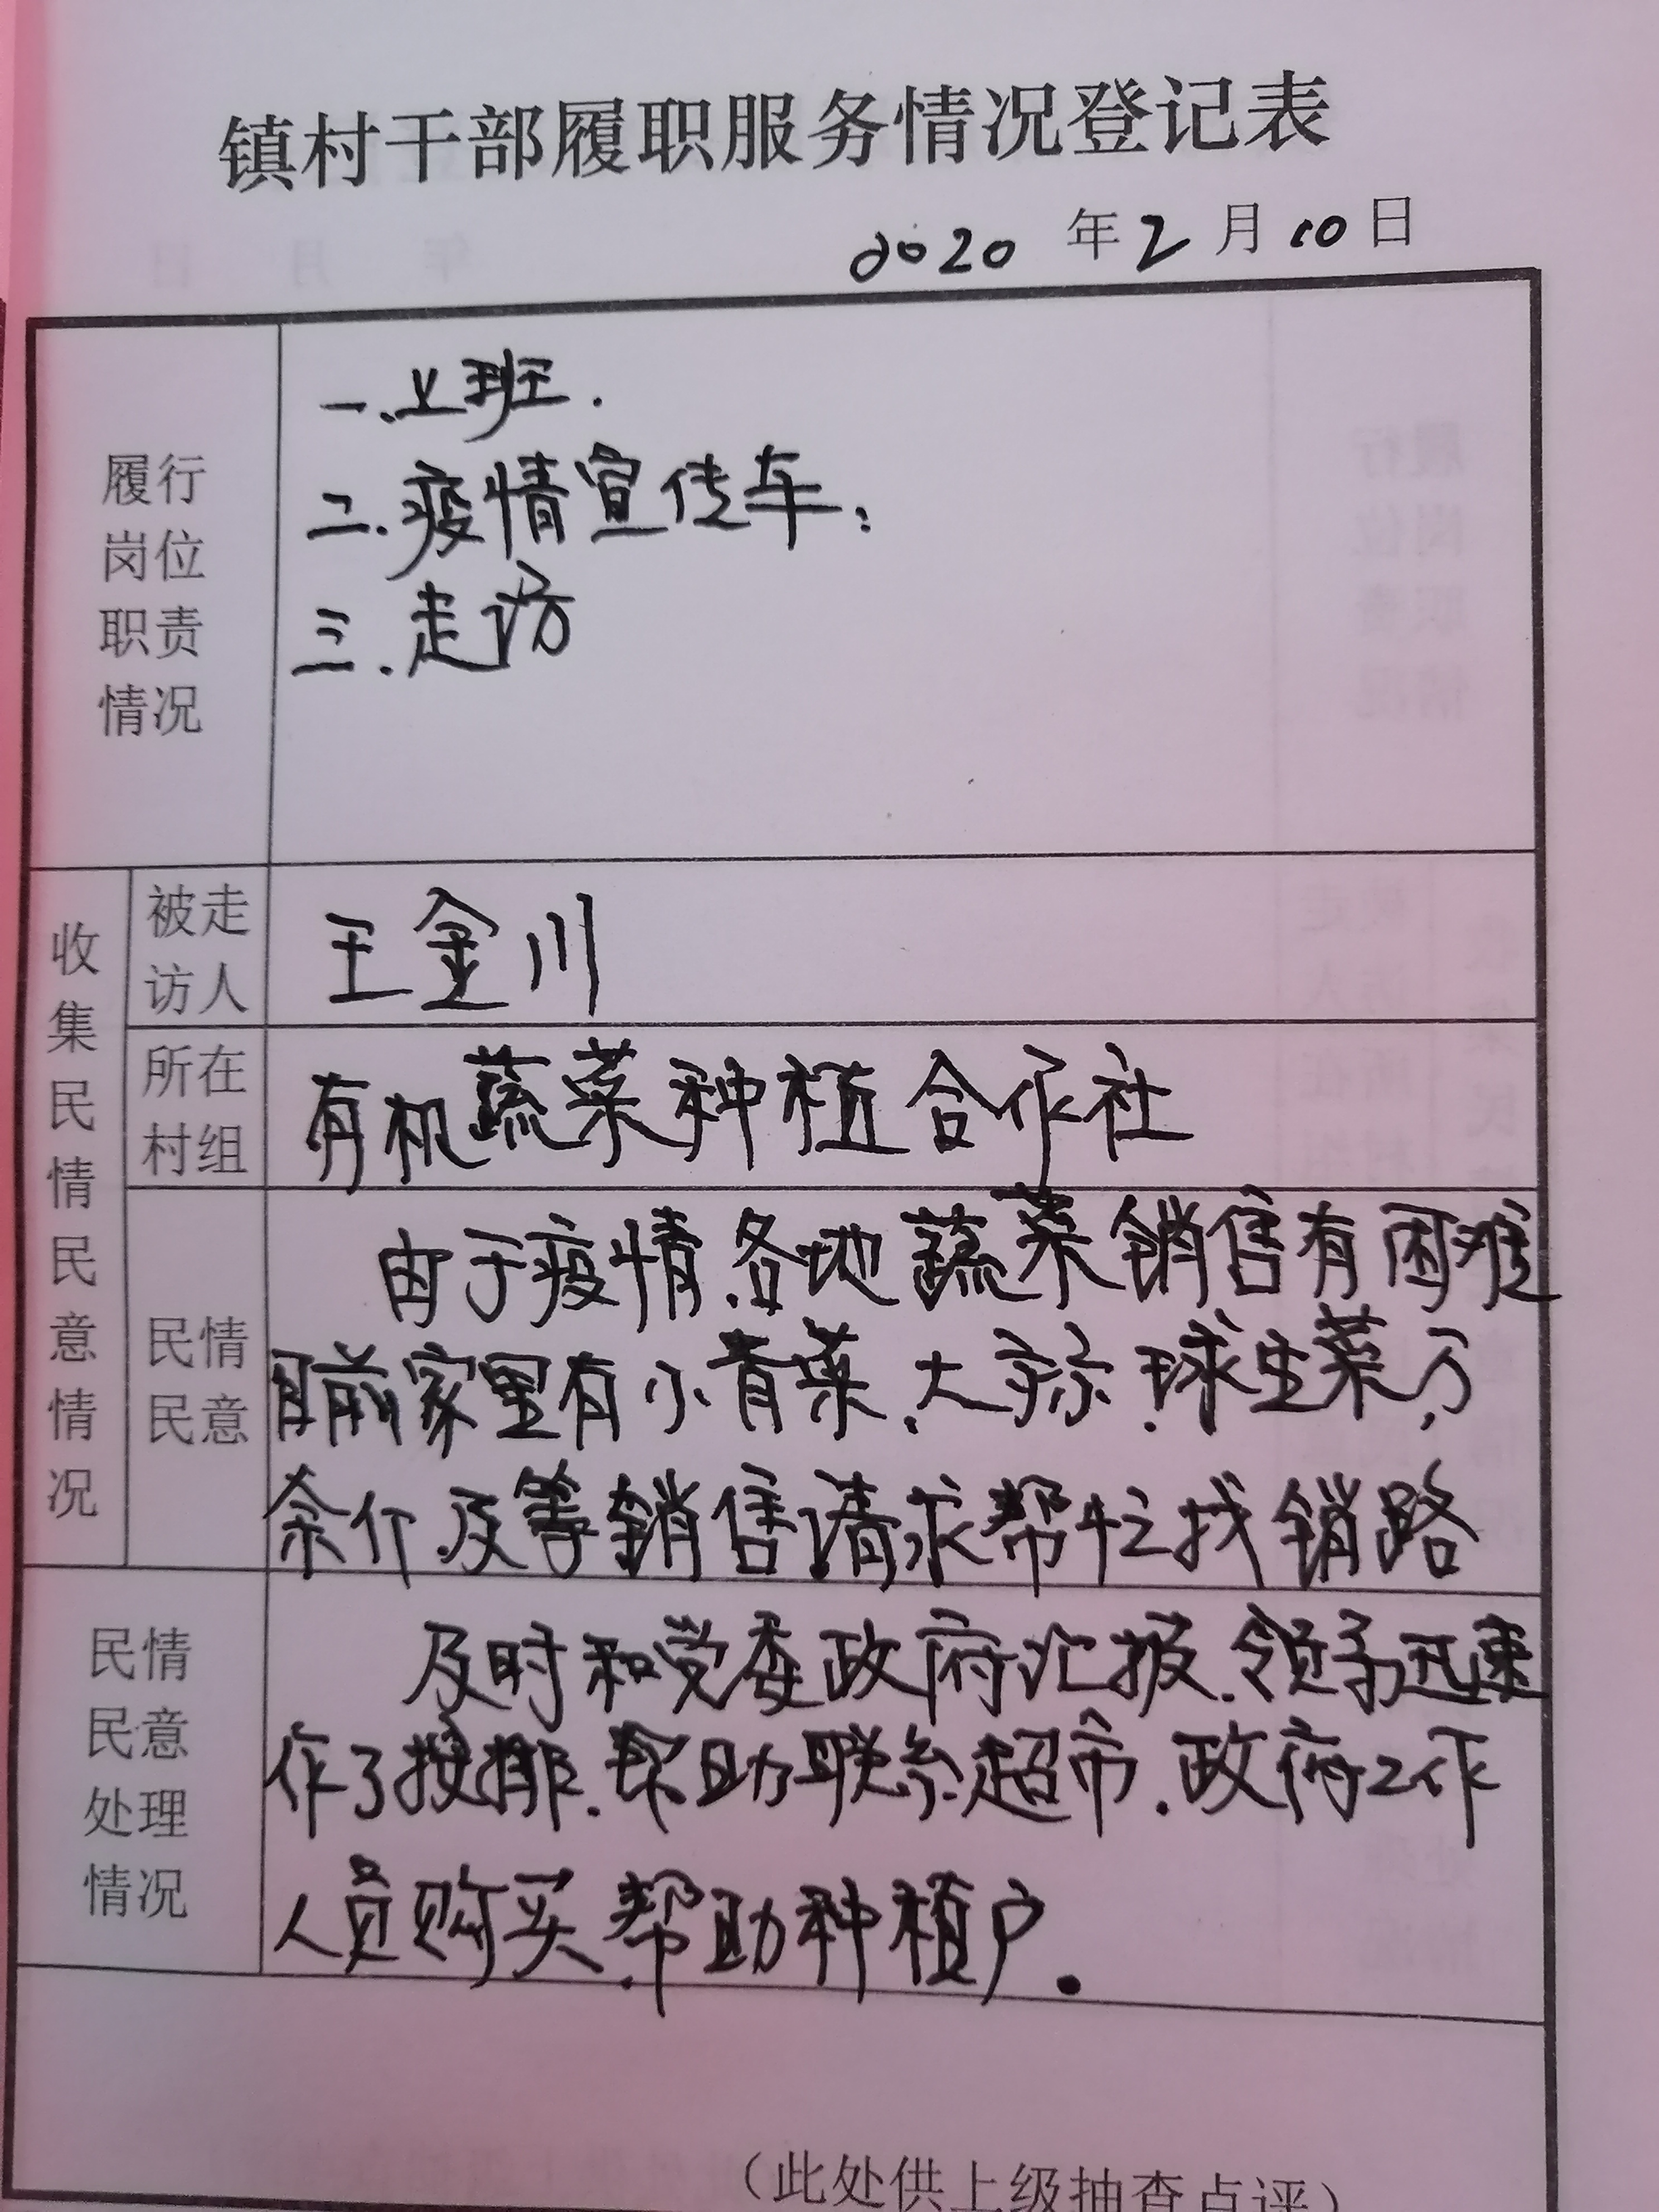 镇村干部履职服务情况登记表
2020 年 2 月 10 日
履行
岗位
职责
情况
一.上班.
二.疫情宣传车;
三.走访
收集民情民意情况
被走
访人
王金川
所在
村组
有机蔬菜种植合作社
民情
民意
由于疫情.各地蔬菜销售有困难
目前家里有小青菜.大.球生菜,
及等销售请求帮忙找销路
民情
民意
处理
情况
及时和党委政府汇报.领导迅速
作了按排.帮助联系超市.政府工作
人员购买.帮助种植户.
(此处供上级抽查点评)